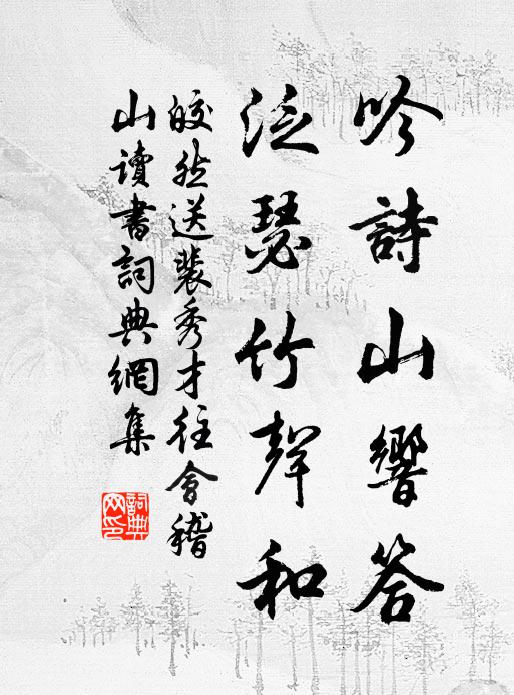 吟詩山響答
泛瑟竹聲和
皎然送裴秀才往會稽
山讀書詞典網集
詞典
网印